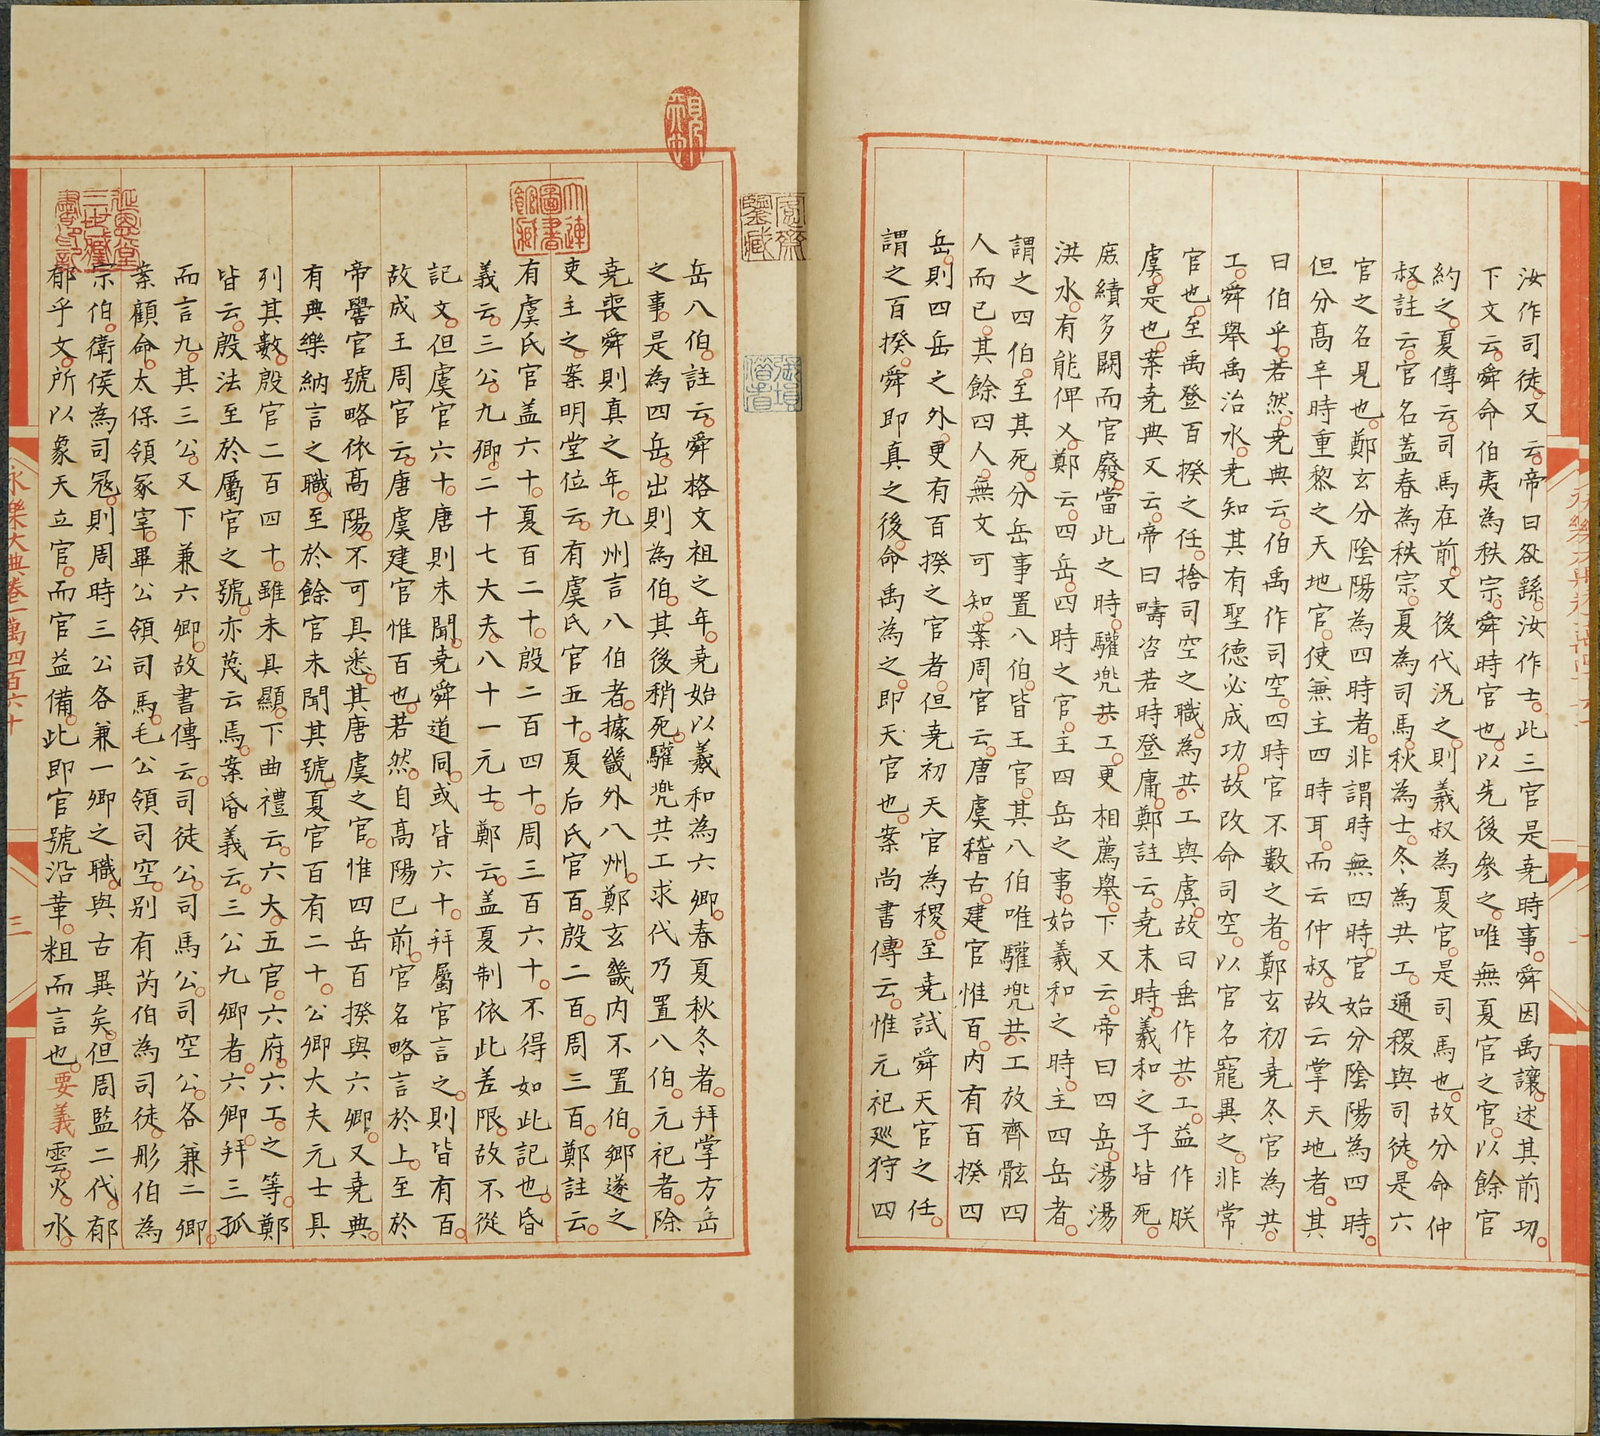 汝作司徒又云帝曰咨繇汝作士此三官是堯時事舜因禹讓述其前功
下文云舜命伯夷為秩宗舜時官也以先後參之唯無夏官之官以餘官
約之夏傳云司馬在前又後代況之則羲叔為夏官是司馬也故分命仲
叔註云官名蓋春為秩宗夏為司馬秋為士冬為共工通稷與司徒是六
官之名見也鄭玄分陰陽為四時者非謂時無四時官始分陰陽為四時
但分高辛時重黎之天地官使兼主四時耳而云仲叔故云掌天地者其
曰伯乎若然堯典云伯禹作司空四時官不數之者鄭玄初堯冬官為共
工舜舉禹治水堯知其有聖德必成功故改命司空以官名寵異之非常
官也至禹登百揆之任捨司空之職為共工與虞故曰垂作共工益作朕
虞是也案堯典又云帝曰疇咨若時登庸鄭註云堯末時羲和之子皆死
庶績多闕而官廢當此之時驩兜共工更相薦舉下又云帝曰四岳湯湯
洪水有能俾乂鄭云四岳四時之官主四岳之事始羲和之時主四岳者
謂之四伯至其死分岳事置八伯皆王官其八伯唯驩兜共工放齊骸四
人而已其餘四人無文可知案周官云唐虞稽古建官惟百內有百揆四
岳則四岳之外更有百揆之官者但堯初天官為稷至堯試舜天官之任
謂之百揆舜即真之後命禹為之即天官也案尚書傳云惟元祀巡狩四
岳八伯註云舜格文祖之年堯始以羲和為六卿春夏秋冬者拜掌方岳
之事是為四岳出則為伯其後稍死驩兜共工求代乃置八伯元祀者除
堯喪舜則真之年九州言八伯者據畿外八州鄭玄畿內不置伯鄉遂之
吏主之案明堂位云有虞氏官五十夏后氏官百殷二百周三百鄭註云
有虞氏官盖六十夏百二十殷二百四十周三百六十不得如此記也昏
義云三公九卿二十七大夫八十一元士鄭云盖夏制依此差限故不從
記文但虞官六十唐則未聞堯舜道同或皆六十拜屬官言之則皆有百
故成王周官云唐虞建官惟百也若然自高陽已前官名略言於上至於
帝嚳官號略依高陽不可具悉其唐虞之官惟四岳百揆與六卿又堯典
有典樂納言之職至於餘官未聞其號夏官百有二十公卿大夫元士具
列其數殷官二百四十雖未具顯下曲禮云六大五官六府六工之等鄭
皆云殷法至於屬官之號亦蔑云焉案昏義云三公九卿者六卿拜三孤
而言九其三公又下兼六卿故書傳云司徒公司馬公司空公各兼二卿
案顧命太保領冢宰畢公領司馬毛公領司空別有芮伯為司徒彤伯為
宗伯衛侯為司寇則周時三公各兼一卿之職與古異矣但周監二代郁
郁乎文所以象天立官而官益備此即官號沿革粗而言也要義雲火水
永樂大典卷一萬四百六十
三
大連圖書館藏
延恩堂三世藏書印記